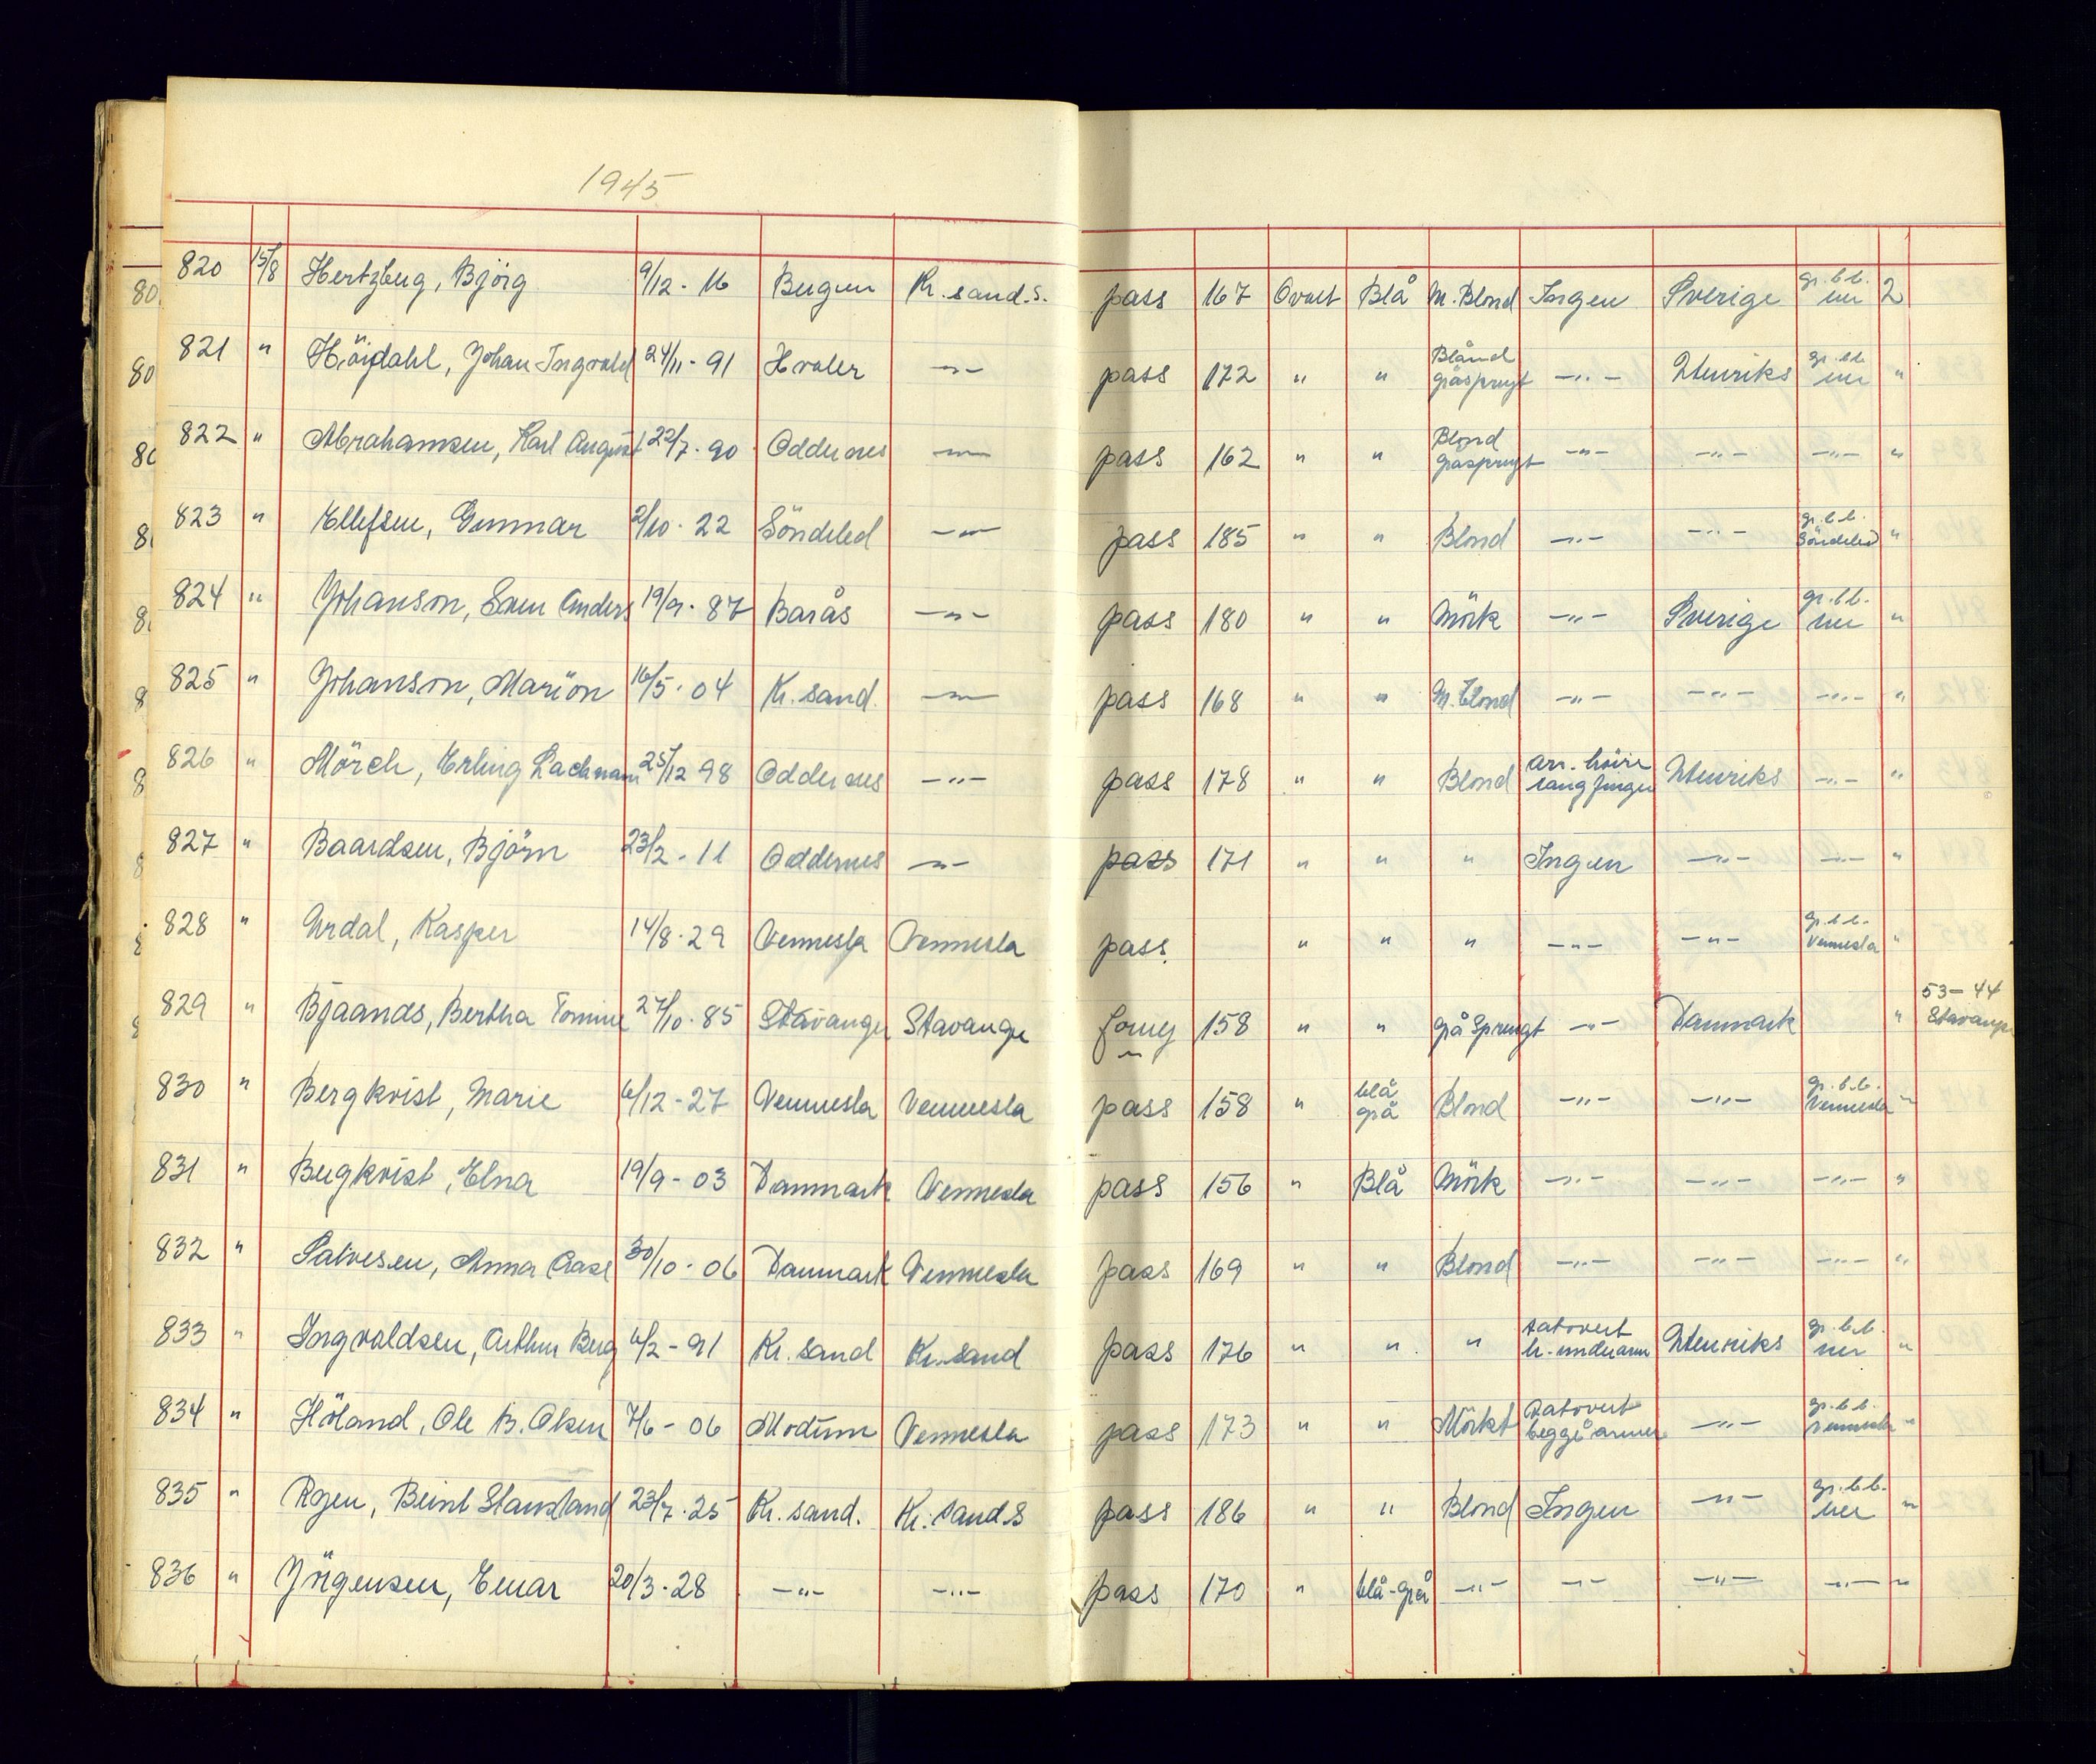 1945
820 15/8 Hertzberg, Björg 9/12 - 16 Bergen Kr.sand.S. pass 167 Ovalt Blå M. Blond Ingen Sverige gr.b.b. her 2
821 " Höjdahl, Johan Ingvald 24/11 - 91 Hvaler -"- pass 172 " " Blånd gråsprengt -"- Utenriks gr.b.b. her "
822 " Abrahamsen, Karl August 22/7 - 90 Oddernes -"- pass 162 " " Blond gråsprengt -"- -"- -"- "
823 " Ellefsen, Gunnar 2/10 - 22 Söndeled -"- pass 185 " " Blond -"- -"- gr.b.b. Söndeled "
824 " Johanson, Sven Anders 19/9 - 87 Barås -"- pass 180 " " Mörk -"- Sverige gr.b.b. her "
825 " Johanson, Marion 16/5 - 04 Kr.sand. -"- pass 168 " " M. blond -"- -"- -"- "
826 " Mörch, Erling Lachmann 25/12 98 Oddernes -"- pass 178 " " Blond arr. höire langfinger Utenriks -"- "
827 " Baardsen, Björn 23/2 - 11 Oddernes -"- pass 171 " " " Ingen -"- -"- "
828 " Urdal, Kasper 14/8 - 29 Vennesla Vennesla pass. " " " -"- -"- gr.b.b. Vennesla "
829 " Bjaands, Bertha Tomine 27/10 - 85 Stavanger Stavanger forny 158 " " grå Sprengt -"- Danmark " 53-44 Stavanger
830 " Bergkvist, Marie 6/12 - 27 Vennesla Vennesla pass 158 " blå grå Blond -"- -"- gr.b.b. Vennesla "
831 " Bergkvist, Elna 19/9 - 03 Danmark Vennesla pass 156 " Blå Mörk -"- -"- -"- "
832 " Salvesen, Anna Aase 30/10 - 06 Danmark Vennesla pass 169 " " Blond -"- -"- -"- "
833 " Ingvaldsen, Arthur Berg 6/2 - 91 Kr.sand Kr.sand pass 176 " " " tatovert h. underarm Utenriks gr.b.b. her "
834 " Höland, Ole B. Olsen 7/6 - 06 Modum Vennesla pass 173 " " Mörkt Tatovert begge armer -"- gr.b.b. Vennesla "
835 " Rgen, Beint Stausland 23/7 - 25 Kr.sand. Kr.sand.S pass 186 " " Blond Ingen -"- gr.b.b. her "
836 " Jörgensen, Einar 20/3 - 28 -"- -"- pass 170 " blå-grå -"- -"- -"- -"- "